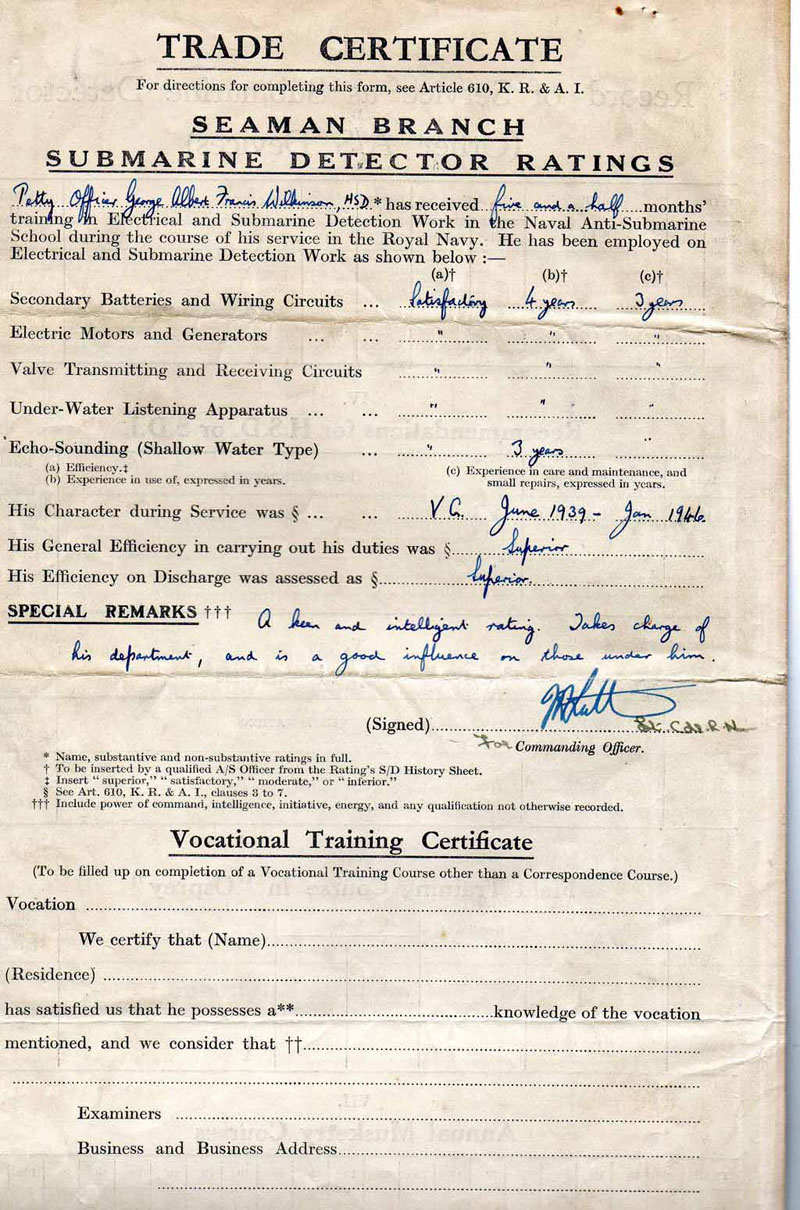 TRADE CERTIFICATE
For directions for completing this form, see Article 610, K. R. & A. I.
SEAMAN BRANCH
SUBMARINE DETECTOR RATINGS
Petty Officer George Albert Francis Wilkinson, HSD.* has received five and a half months'
training in Electrical and Submarine Detection Work in the Naval Anti-Submarine
School during the course of his service in the Royal Navy. He has been employed on
Electrical and Submarine Detection Work as shown below :—
(a)† (b)† (c)†
Secondary Batteries and Wiring Circuits ... Satisfactory 4 years 3 years
Electric Motors and Generators ... ... " " "
Valve Transmitting and Receiving Circuits " " "
Under-Water Listening Apparatus ... ... " " "
Echo-Sounding (Shallow Water Type) ... " 3 years "
(a) Efficiency.‡
(b) Experience in use of, expressed in years.
(c) Experience in care and maintenance, and
small repairs, expressed in years.
His Character during Service was § ... ... V.G. June 1939 - Jan 1946
His General Efficiency in carrying out his duties was § Superior
His Efficiency on Discharge was assessed as § Superior.
SPECIAL REMARKS ††† A keen and intelligent rating. Takes charge of
his department, and is a good influence on those under him.
(Signed) Lt. Cdr R.N.
For Commanding Officer.
* Name, substantive and non-substantive ratings in full.
† To be inserted by a qualified A/S Officer from the Rating's S/D History Sheet.
‡ Insert "superior," "satisfactory," "moderate," or "inferior."
§ See Art. 610, K. R. & A. I., clauses 3 to 7.
††† Include power of command, intelligence, initiative, energy, and any qualification not otherwise recorded.
Vocational Training Certificate
(To be filled up on completion of a Vocational Training Course other than a Correspondence Course.)
Vocation
We certify that (Name)
(Residence)
has satisfied us that he possesses a** knowledge of the vocation
mentioned, and we consider that ††
Examiners
Business and Business Address